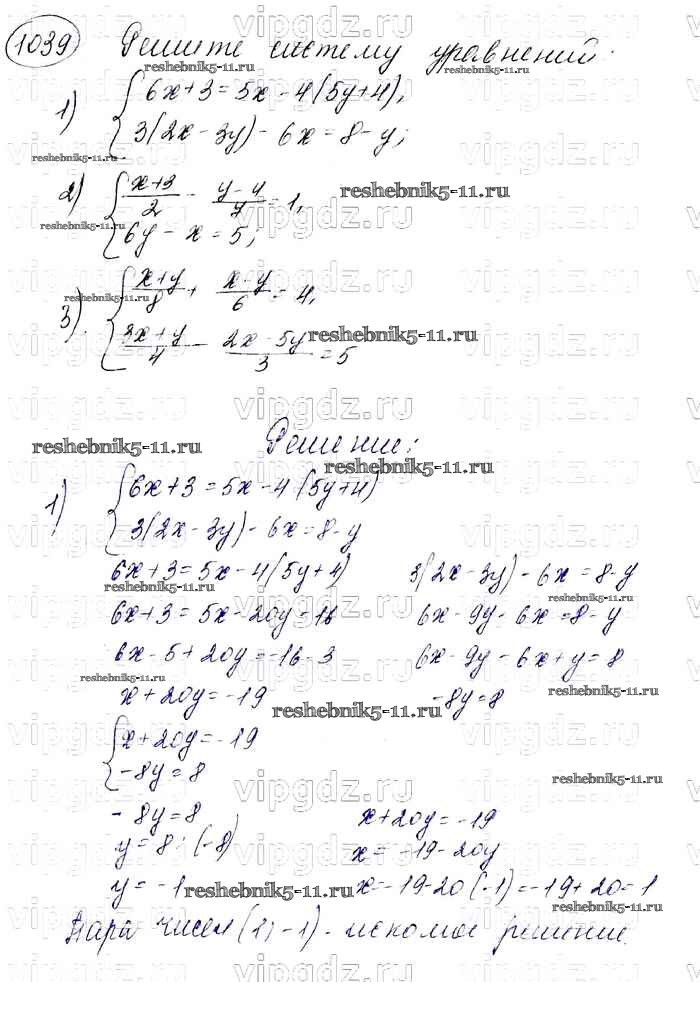 1039 Решите систему уравнений:
1) { 6x+3=5x-4(5y+4),
3(2x-3y)-6x=8-y;
2) { (x+3)/2 - (y-4)/7 = 1,
6y-x=5;
3) { (x+y)/8 + (x-y)/6 = 4,
(3x+y)/4 - (2x-5y)/3 = 5
Решение:
1) { 6x+3=5x-4(5y+4)
3(2x-3y)-6x=8-y
6x+3=5x-4(5y+4) 3(2x-3y)-6x=8-y
6x+3=5x-20y-16 6x-9y-6x=8-y
6x-5+20y=-16-3 6x-9y-6x+y=8
x+20y=-19 -8y=8
{ x+20y=-19
-8y=8
-8y=8 x+20y=-19
y=8:(-8) x=-19-20y
y=-1 x=-19-20(-1)=-19+20=1
Пара чисел (1;-1) - искомое решение.
reshebnik5-11.ru
vipgdz.ru